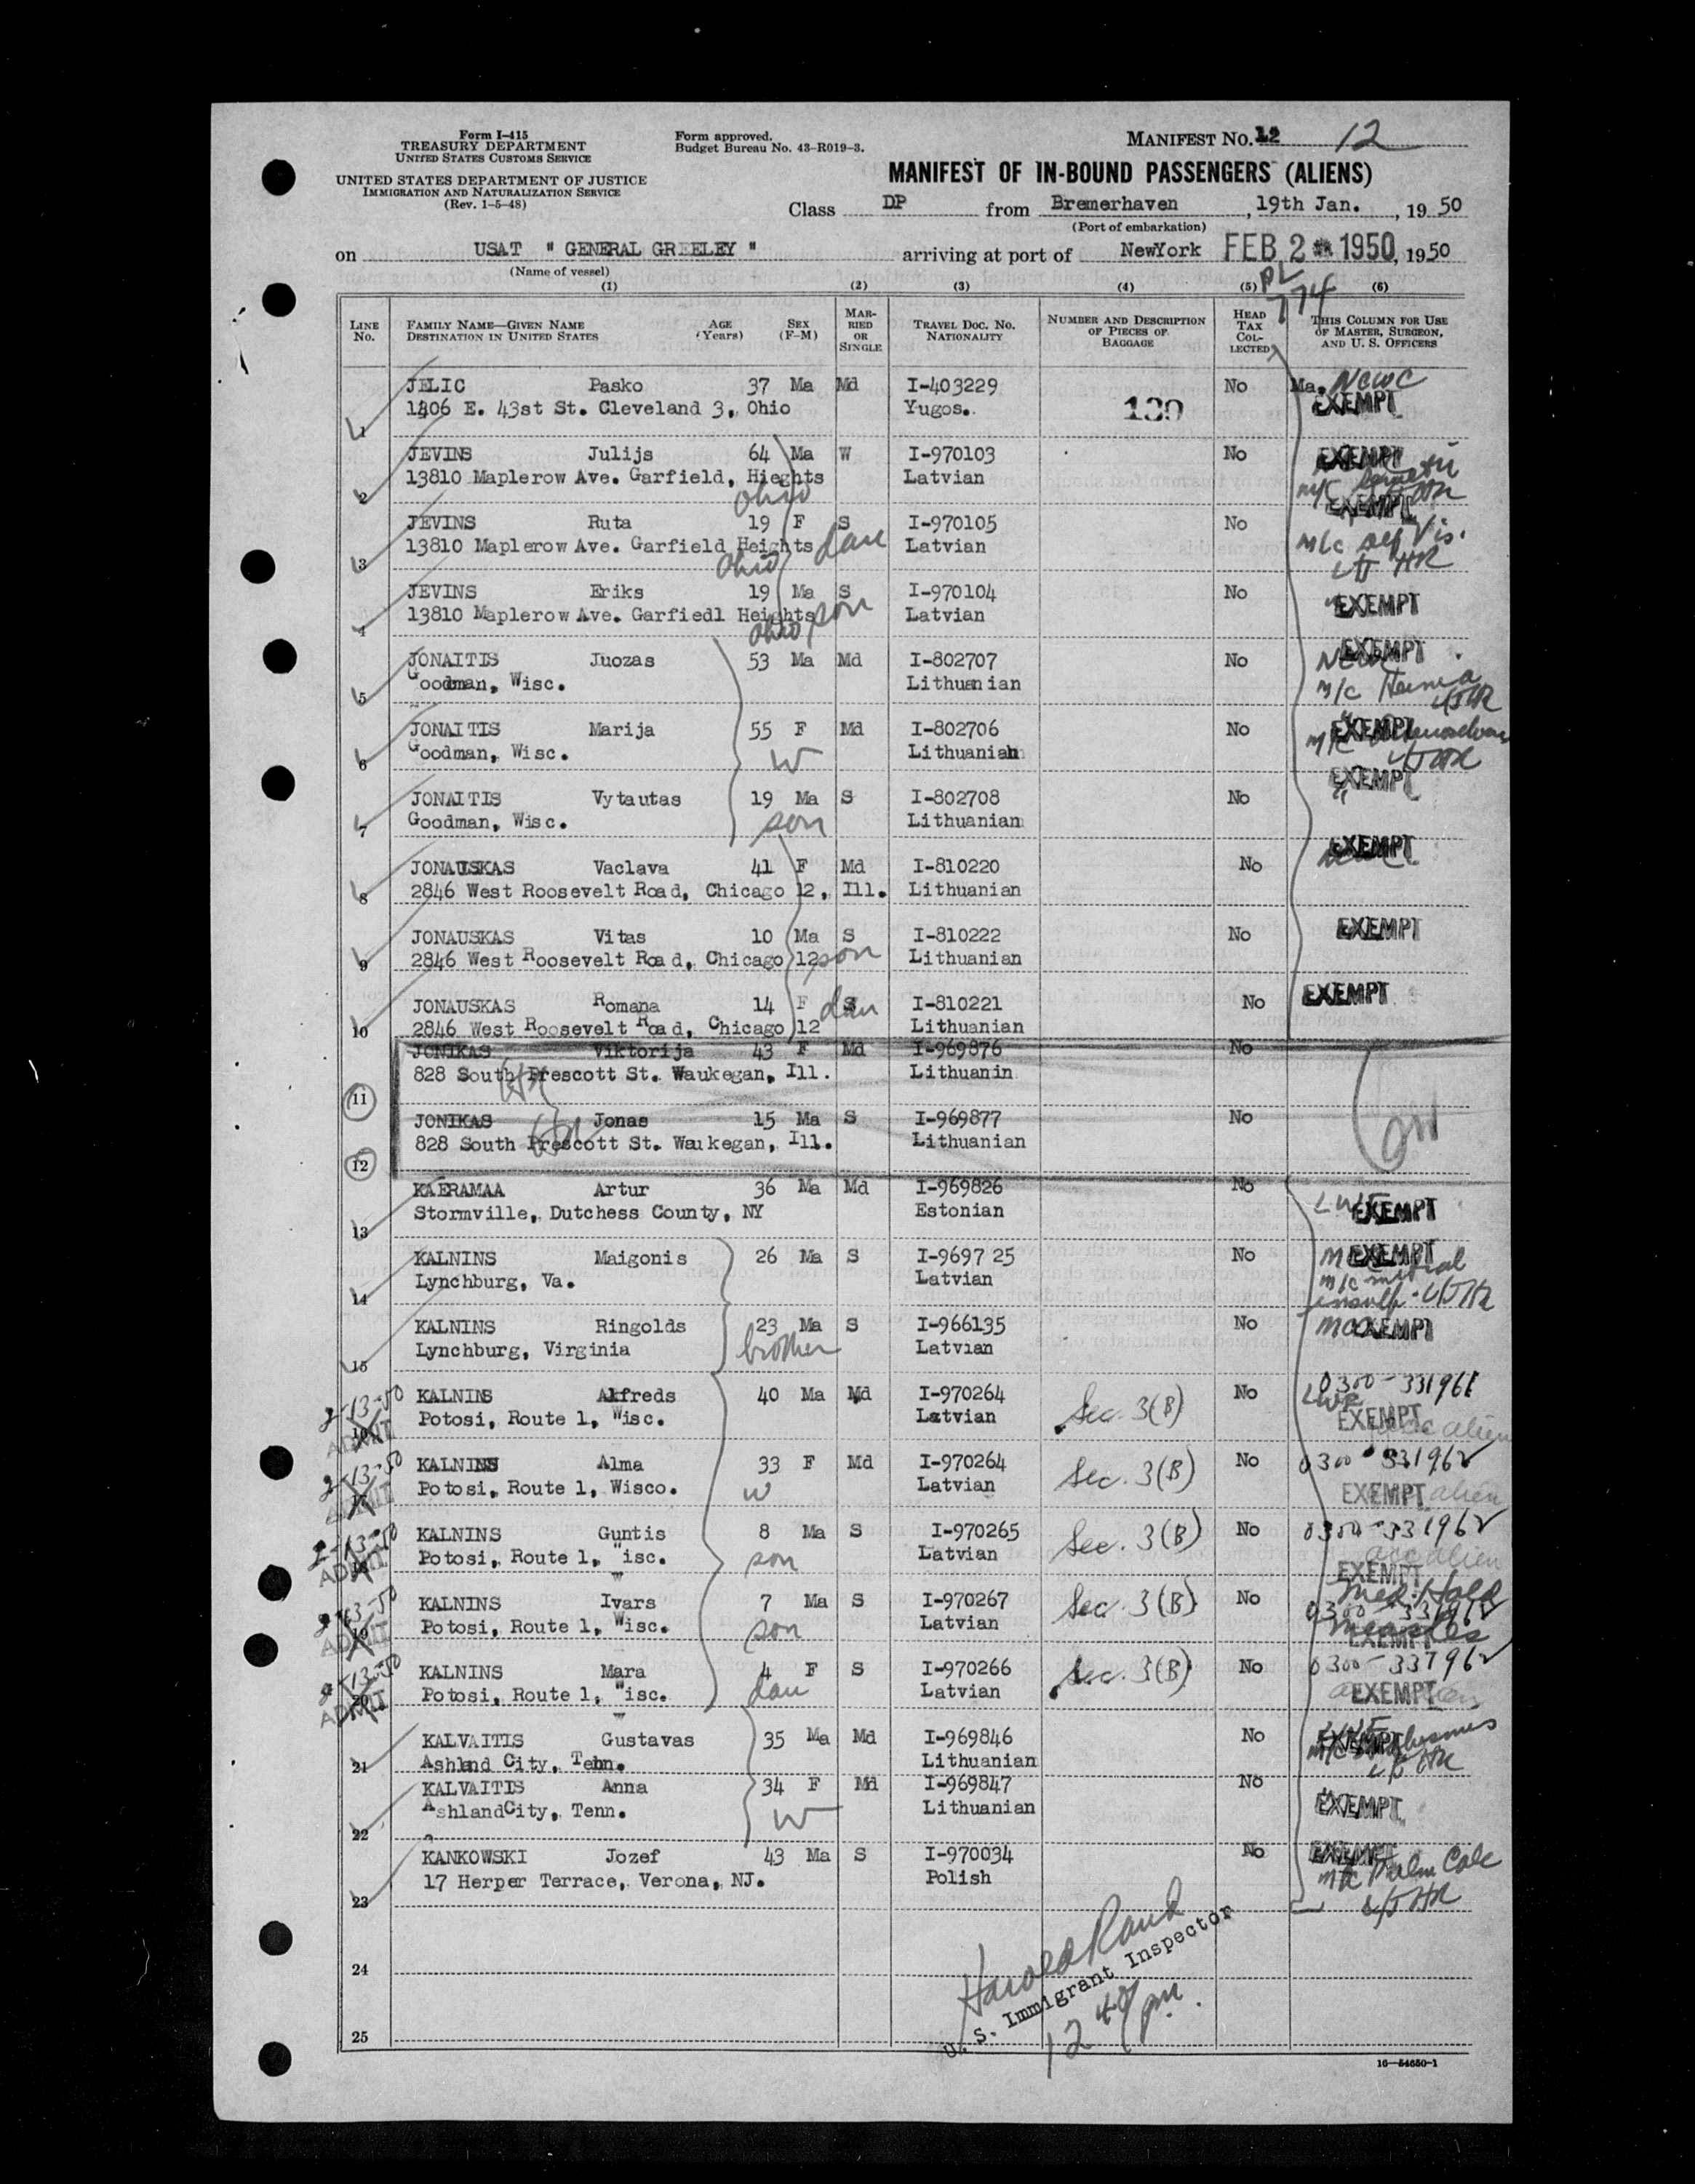 Form I-415
TREASURY DEPARTMENT
UNITED STATES CUSTOMS SERVICE
UNITED STATES DEPARTMENT OF JUSTICE
IMMIGRATION AND NATURALIZATION SERVICE
(Rev. 1-5-48)
Form approved.
Budget Bureau No. 43-R019-3.
MANIFEST NO. 12 12
MANIFEST OF IN-BOUND PASSENGERS (ALIENS)
Class DP from Bremerhaven, 19th Jan., 1950
(Port of embarkation)
on USAT " GENERAL GREELEY " arriving at port of NewYork FEB 2 1950, 1950
(Name of vessel)
PL 774
(1) (2) (3) (4) (5) (6)
LINE No. FAMILY NAME—GIVEN NAME DESTINATION IN UNITED STATES AGE (Years) SEX (F-M) MARRIED OR SINGLE TRAVEL DOC. NO. NATIONALITY NUMBER AND DESCRIPTION OF PIECES OF BAGGAGE HEAD TAX COLLECTED THIS COLUMN FOR USE OF MASTER, SURGEON, AND U. S. OFFICERS
JELIC Pasko 37 Ma Md I-403229 No Ma. NCWC
1 E. 43st St. Cleveland 3, Ohio Yugos. 139 EXEMPT
JEVINS Julijs 64 Ma W I-970103 No EXEMPT
2 13810 Maplerow Ave. Garfield, Hieghts Ohio Latvian m/c
EXEMPT
JEVINS Ruta 19 F S I-970105 No
3 13810 Maplerow Ave. Garfield Heights Ohio dau Latvian m/c def Vis.
JEVINS Eriks 19 Ma S I-970104 No
4 13810 Maplerow Ave. Garfiedl Heights Ohio son Latvian EXEMPT
JONAITIS Juozas 53 Ma Md I-802707 No EXEMPT
5 Goodman, Wisc. Lithuanian m/c Hernia
JONAITIS Marija 55 F Md I-802706 No EXEMPT
6 Goodman, Wisc. W Lithuanian m/c
JONAITIS Vytautas 19 Ma S I-802708 No EXEMPT
7 Goodman, Wisc. son Lithuanian
JONAUSKAS Vaclava 41 F Md I-810220 No EXEMPT
8 2846 West Roosevelt Road, Chicago 12, Ill. Lithuanian
JONAUSKAS Vitas 10 Ma S I-810222 No EXEMPT
9 2846 West Roosevelt Road, Chicago 12 son Lithuanian
JONAUSKAS Romana 14 F S dau I-810221 No EXEMPT
10 2846 West Roosevelt Road, Chicago 12 Lithuanian
JONIKAS Viktorija 43 F Md I-969876 No
11 828 South Prescott St. Waukegan, Ill. Lithuanin
JONIKAS Jonas 15 Ma S I-969877 No
12 828 South Prescott St. Waukegan, Ill. Lithuanian
KAERAMAA Artur 36 Ma Md I-969826 No
13 Stormville, Dutchess County, NY Estonian EXEMPT
KALNINS Maigonis 26 Ma S I-9697 25 No EXEMPT
14 Lynchburg, Va. Latvian m/c mitral
KALNINS Ringolds 23 Ma S I-966135 No EXEMPT
15 Lynchburg, Virginia brother Latvian
KALNINS Alfreds 40 Ma Md I-970264 No 0300-331961
Potosi, Route 1, Wisc. Latvian Sec. 3(B) EXEMPT
2-13-50 ADMIT
KALNINS Alma 33 F Md I-970264 No 0300-331962
Potosi, Route 1, Wisco. w Latvian Sec. 3(B) EXEMPT alien
2-13-50 ADMIT
KALNINS Guntis 8 Ma S I-970265 No 0300-331962
Potosi, Route 1, "isc. son Latvian Sec. 3(B) acc alien EXEMPT
2-13-50 ADMIT
KALNINS Ivars 7 Ma S I-970267 No Med. Hold
Potosi, Route 1, Wisc. son Latvian Sec. 3(B) Measles EXEMPT
2-13-50 ADMIT
KALNINS Mara 4 F S I-970266 No
20 Potosi, Route 1, "isc. dau Latvian Sec. 3(B) EXEMPT
2-13-50 ADMIT
KALVAITIS Gustavas 35 Ma Md I-969846 No EXEMPT
21 Ashland City, Tenn. Lithuanian
KALVAITIS Anna 34 F Md I-969847 No
22 AshlandCity, Tenn. W Lithuanian EXEMPT
KANKOWSKI Jozef 43 Ma S I-970034 No EXEMPT
23 17 Herper Terrace, Verona, NJ. Polish
24
25
Harold Rand
U. S. Immigrant Inspector
12 47 pm.
16—54650-1